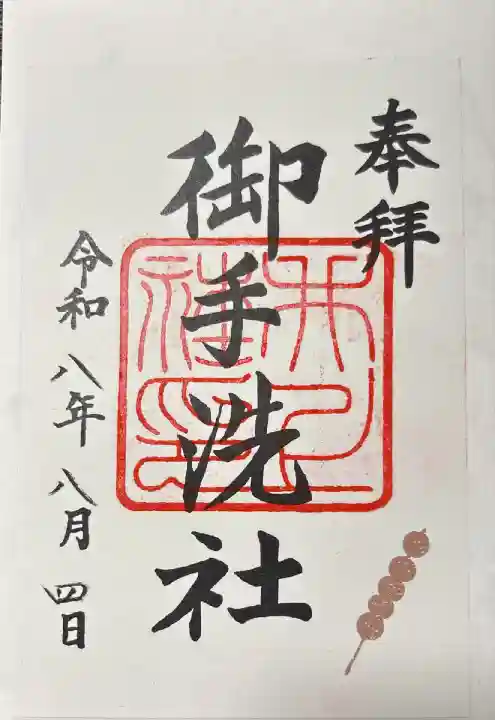 奉拝
御手洗社
令和八年八月四日